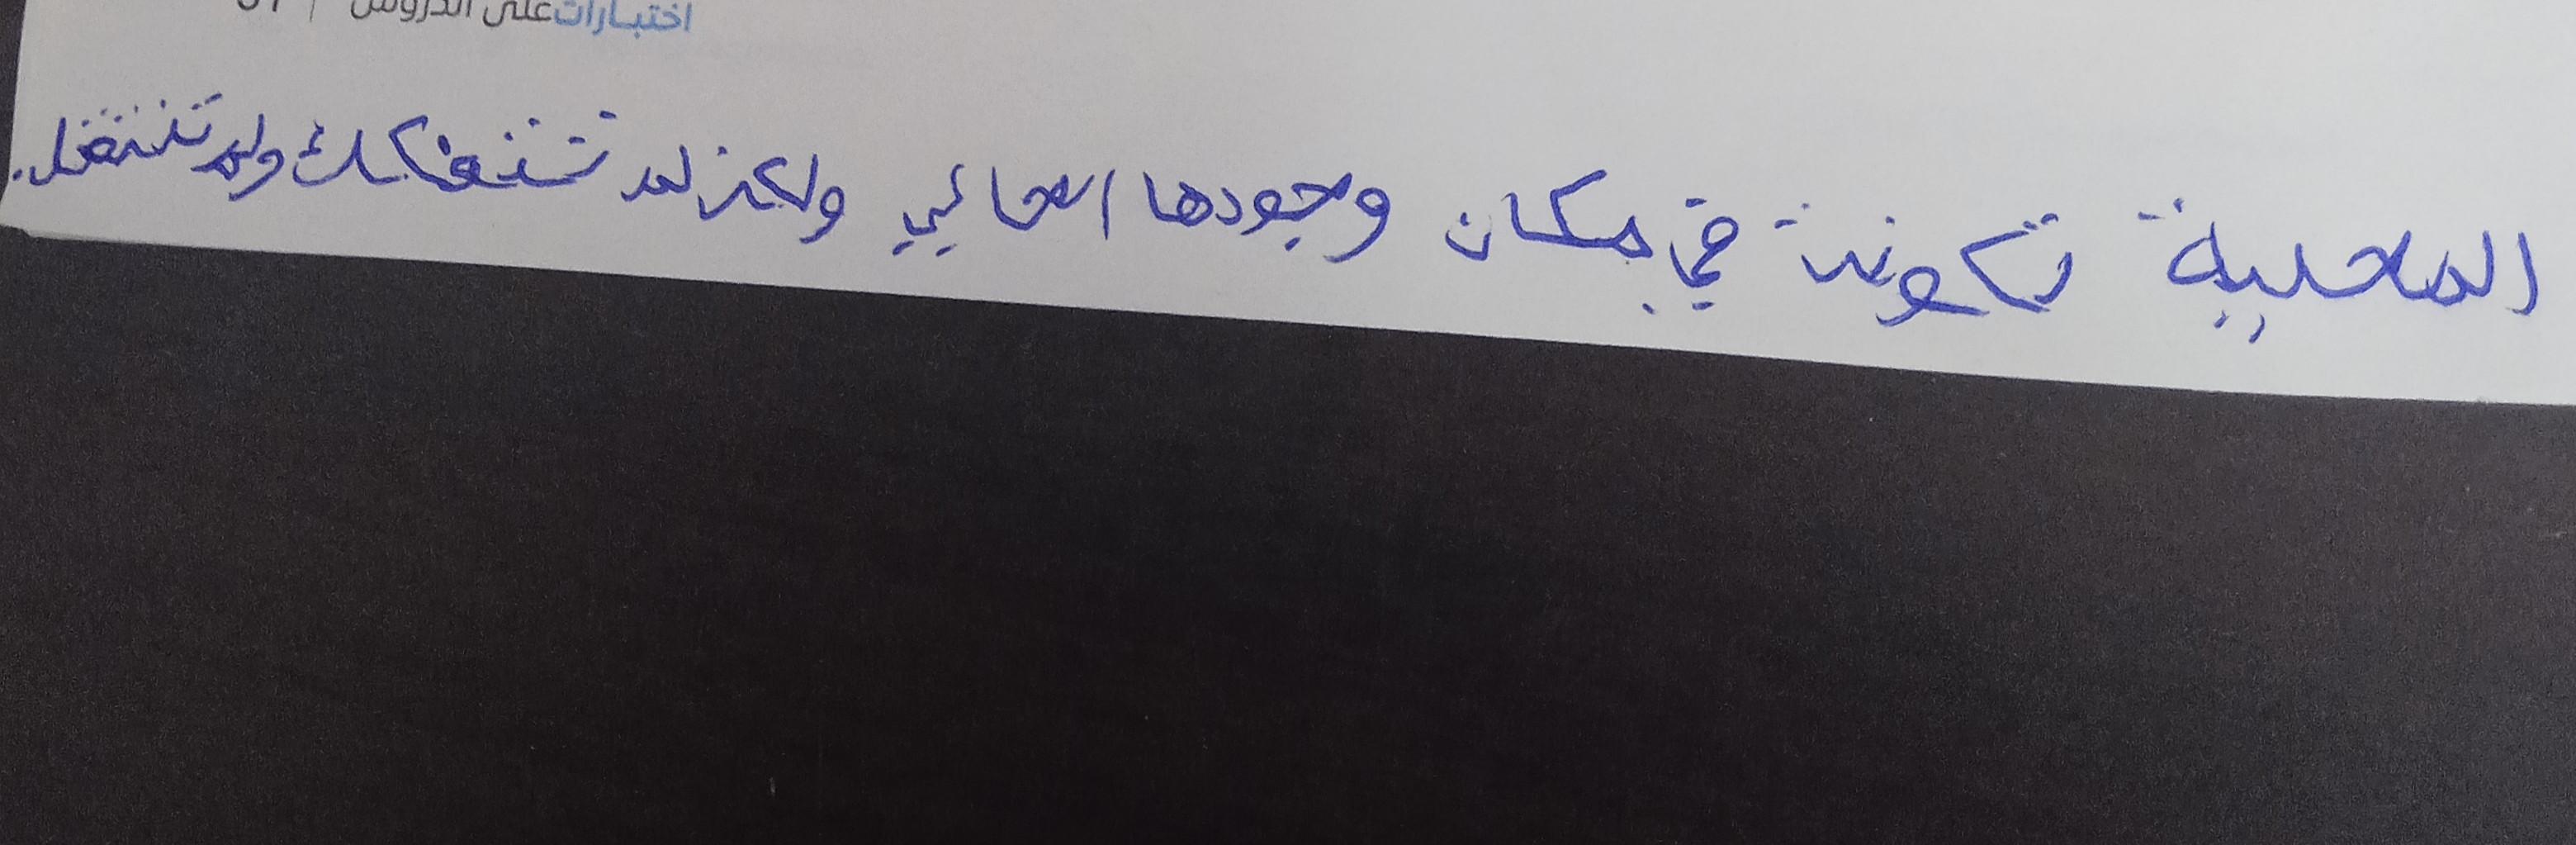 اختبارات على الدروس
المحلية تكونت في مكان وجودها الحالي ولكن لم تتفكك ولم تنتقل.